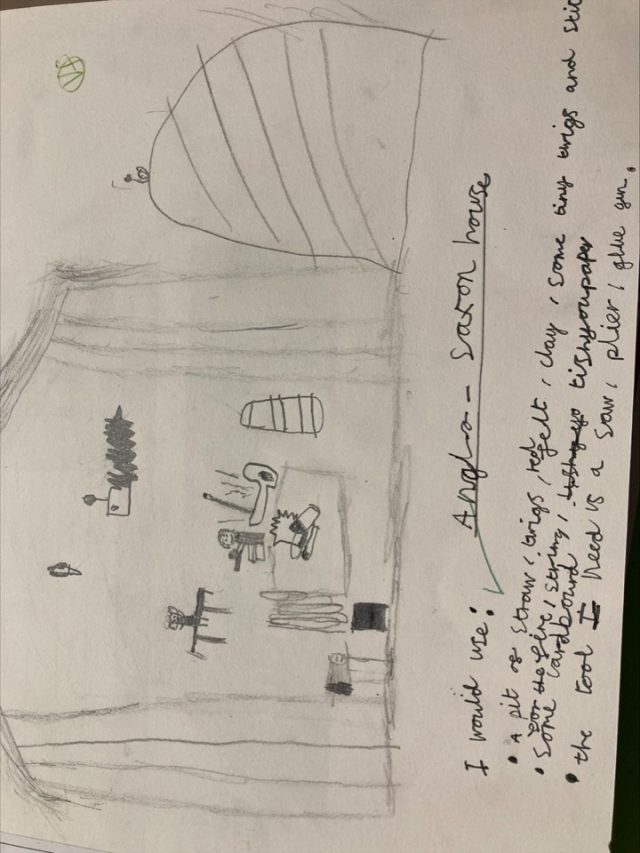 Anglo - Saxon house
I would use:
• A pit of straw, twigs, red felt, clay, some tiny twigs and stic
for the fire, string, tishyoupaper
• Some cardboard
• the tool I need is a saw, plier, glue gun.